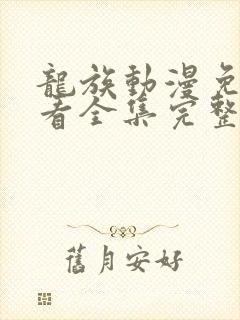 龍族動漫免
看全集完整
舊月安好